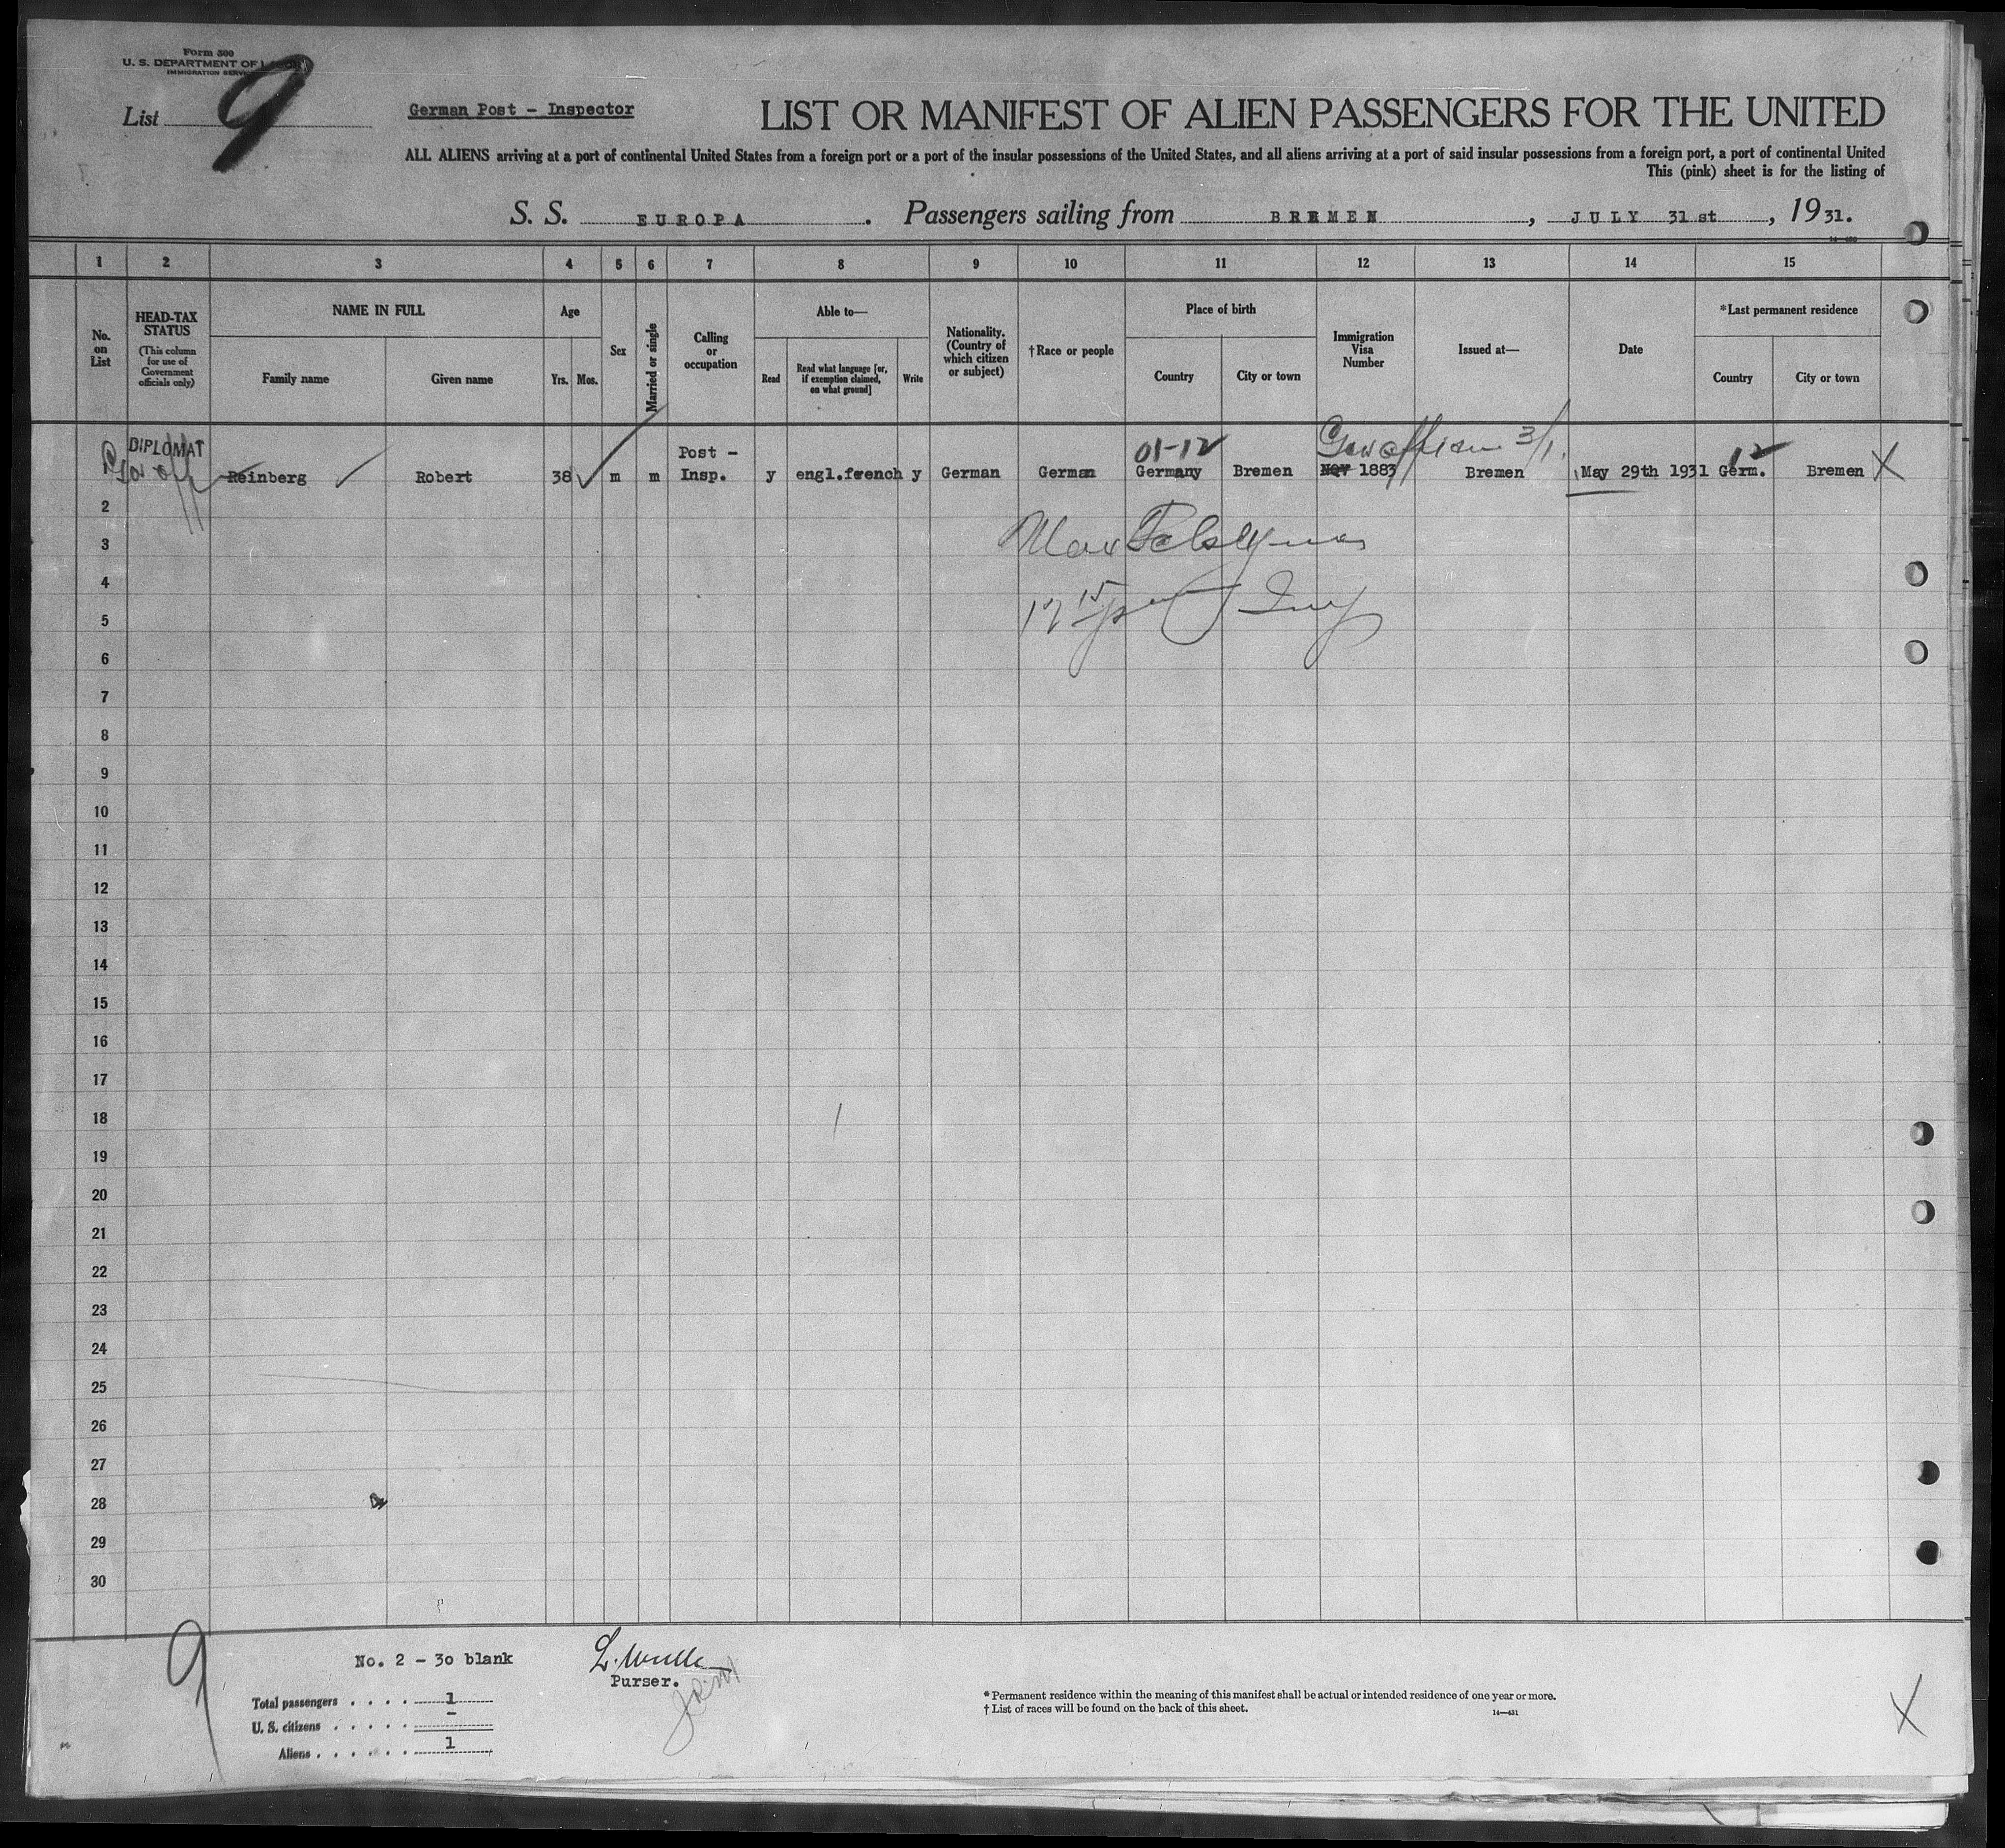 Form 500
U. S. DEPARTMENT OF LABOR
IMMIGRATION SERVICE
List 9
German Post - Inspector
LIST OR MANIFEST OF ALIEN PASSENGERS FOR THE UNITED
ALL ALIENS arriving at a port of continental United States from a foreign port or a port of the insular possessions of the United States, and all aliens arriving at a port of said insular possessions from a foreign port, a port of continental United
This (pink) sheet is for the listing of
S. S. EUROPA. Passengers sailing from BREMEN, JULY 31st, 1931.
1 2 3 4 5 6 7 8 9 10 11 12 13 14 15
No. on List
HEAD-TAX STATUS
(This column for use of Government officials only)
NAME IN FULL
Family name Given name
Age
Yrs. Mos.
Sex
Married or single
Calling or occupation
Able to—
Read
Read what language [or, if exemption claimed, on what ground]
Write
Nationality. (Country of which citizen or subject)
†Race or people
Place of birth
Country City or town
Immigration Visa Number
Issued at—
Date
*Last permanent residence
Country City or town
DIPLOMAT 01-12 3/1 12
Reinberg Robert 38 m m Post - Insp. y engl.french y German German Germany Bremen NQV 1883 Bremen May 29th 1931 Germ. Bremen X
2
3
4
5
6
7
8
9
10
11
12
13
14
15
16
17
18
19
20
21
22
23
24
25
26
27
28
29
30
9
No. 2 - 30 blank
Purser.
Total passengers . . . . 1
U. S. citizens . . . . . -
Aliens . . . . . . 1
* Permanent residence within the meaning of this manifest shall be actual or intended residence of one year or more.
† List of races will be found on the back of this sheet.
14—431
X